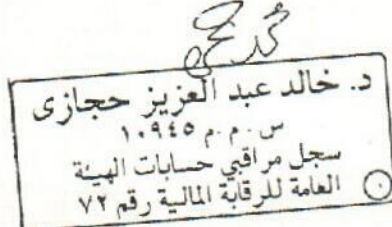 د. خالد عبد العزيز حجازى
س . م . م ١٠٩٤٥
سجل مراقبي حسابات الهيئة
العامة للرقابة المالية رقم ٧٢